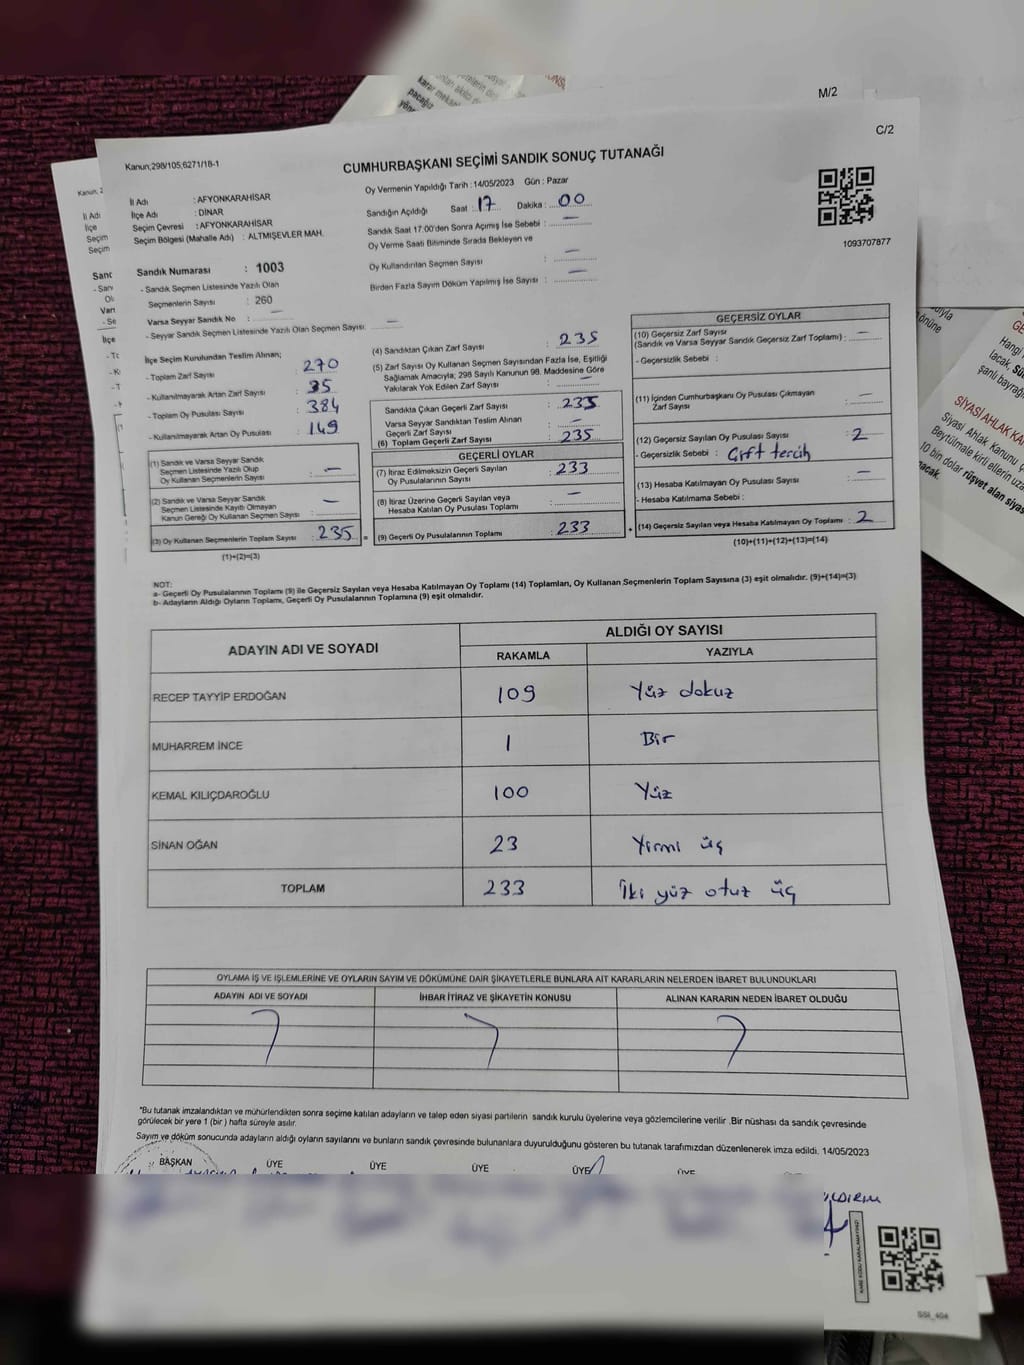 M/2
C/2
Kanun;298/105;6271/18-1
CUMHURBAŞKANI SEÇİMİ SANDIK SONUÇ TUTANAĞI
İl Adı : AFYONKARAHİSAR
İlçe Adı : DİNAR
Seçim Çevresi : AFYONKARAHİSAR
Seçim Bölgesi (Mahalle Adı) : ALTMIŞEVLER MAH.
Oy Vermenin Yapıldığı Tarih : 14/05/2023 Gün : Pazar
Sandığın Açıldığı Saat : 17 Dakika : 00
Sandık Saat 17.00'den Sonra Açımış İse Sebebi : —
Oy Verme Saati Bitiminde Sırada Bekleyen ve
Oy Kullandırılan Seçmen Sayısı : —
Birden Fazla Sayım Döküm Yapılmış İse Sayısı : —
1093707877
Sandık Numarası : 1003
- Sandık Seçmen Listesinde Yazılı Olan
Seçmenlerin Sayısı : 260
Varsa Seyyar Sandık No : —
- Seyyar Sandık Seçmen Listesinde Yazılı Olan Seçmen Sayısı: —
İlçe Seçim Kurulundan Teslim Alınan;
- Toplam Zarf Sayısı : 270
- Kullanılmayarak Artan Zarf Sayısı : 35
- Toplam Oy Pusulası Sayısı : 384
- Kullanılmayarak Artan Oy Pusulası : 149
(1) Sandık ve Varsa Seyyar Sandık
Seçmen Listesinde Yazılı Olup
Oy Kullanan Seçmenlerin Sayısı : —
(2) Sandık ve Varsa Seyyar Sandık
Seçmen Listesinde Kayıtlı Olmayan
Kanun Gereği Oy Kullanan Seçmen Sayısı : —
(3) Oy Kullanan Seçmenlerin Toplam Sayısı : 235
(1)+(2)=(3)
(4) Sandıktan Çıkan Zarf Sayısı : 235
(5) Zarf Sayısı Oy Kullanan Seçmen Sayısından Fazla İse, Eşitliği
Sağlamak Amacıyla; 298 Sayılı Kanunun 98. Maddesine Göre
Yakılarak Yok Edilen Zarf Sayısı : —
Sandıkta Çıkan Geçerli Zarf Sayısı : 235
Varsa Seyyar Sandıktan Teslim Alınan
Geçerli Zarf Sayısı : —
(6) Toplam Geçerli Zarf Sayısı : 235
GEÇERLİ OYLAR
(7) İtiraz Edilmeksizin Geçerli Sayılan
Oy Pusulasının Sayısı : 233
(8) İtiraz Üzerine Geçerli Sayılan veya
Hesaba Katılan Oy Pusulası Toplamı : —
(9) Geçerli Oy Pusulalarının Toplamı : 233
GEÇERSİZ OYLAR
(10) Geçersiz Zarf Sayısı
(Sandık ve Varsa Seyyar Sandık Geçersiz Zarf Toplamı) : —
- Geçersizlik Sebebi :
(11) İçinden Cumhurbaşkanı Oy Pusulası Çıkmayan
Zarf Sayısı : —
(12) Geçersiz Sayılan Oy Pusulası Sayısı : 2
- Geçersizlik Sebebi : Çift tercih
(13) Hesaba Katılmayan Oy Pusulası Sayısı : —
- Hesaba Katılmama Sebebi :
(14) Geçersiz Sayılan veya Hesaba Katılmayan Oy Toplamı : 2
(10)+(11)+(12)+(13)=(14)
NOT:
a- Geçerli Oy Pusulalarının Toplamı (9) ile Geçersiz Sayılan veya Hesaba Katılmayan Oy Toplamı (14) Toplamları, Oy Kullanan Seçmenlerin Toplam Sayısına (3) eşit olmalıdır. (9)+(14)=(3)
b- Adayların Aldığı Oyların Toplamı, Geçerli Oy Pusulalarının Toplamına (9) eşit olmalıdır.
ADAYIN ADI VE SOYADI
ALDIĞI OY SAYISI
RAKAMLA YAZIYLA
RECEP TAYYİP ERDOĞAN 109 Yüz dokuz
MUHARREM İNCE 1 Bir
KEMAL KILIÇDAROĞLU 100 Yüz
SİNAN OĞAN 23 Yirmi üç
TOPLAM 233 İki yüz otuz üç
OYLAMA İŞ VE İŞLEMLERİNE VE OYLARIN SAYIM VE DÖKÜMÜNE DAİR ŞİKAYETLERLE BUNLARA AİT KARARLARIN NELERDEN İBARET BULUNDUKLARI
ADAYIN ADI VE SOYADI İHBAR İTİRAZ VE ŞİKAYETİN KONUSU ALINAN KARARIN NEDEN İBARET OLDUĞU
*Bu tutanak imzalandıktan ve mühürlendikten sonra seçime katılan adayların ve talep eden siyasi partilerin sandık kurulu üyelerine veya gözlemcilerine verilir .Bir nüshası da sandık çevresinde
görülecek bir yere 1 (bir ) hafta süreyle asılır.
Sayım ve döküm sonucunda adayların aldığı oyların sayılarını ve bunların sandık çevresinde bulunanlara duyurulduğunu gösteren bu tutanak tarafımızdan düzenlenerek imza edildi. 14/05/2023
BAŞKAN ÜYE ÜYE ÜYE ÜYE ÜYE